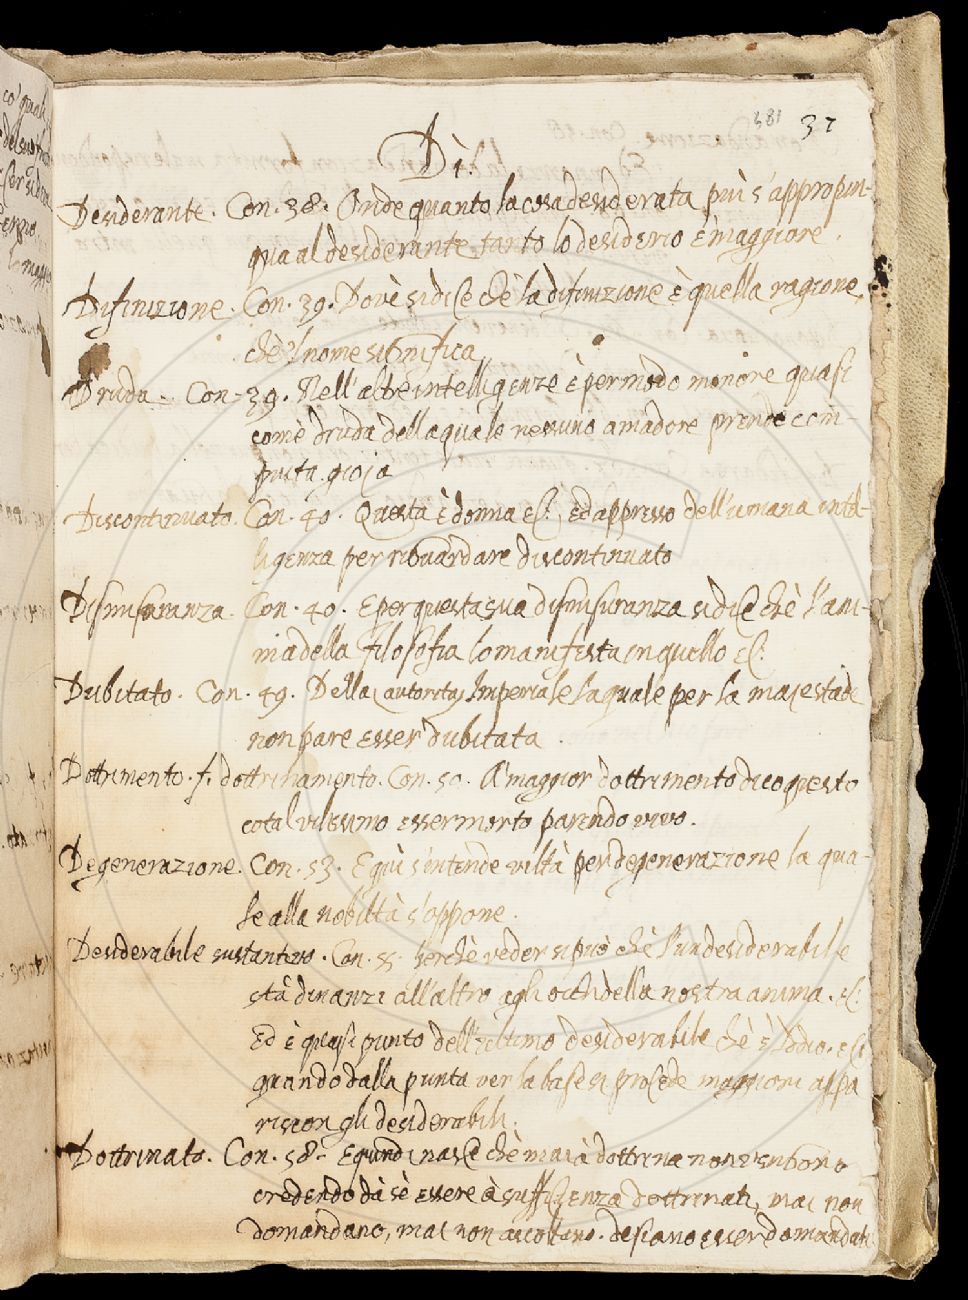 381 37
Di.
Desiderante. Con. 38. Onde quanto la cosa desiderata più s'appropin-
qua al desiderante tanto lo desiderio è maggiore.
Difinizione. Con. 39. Dov'è si dice chè la difinizione è quella ragione,
chè 'l nome significa
Druda. Con. 39. Nell'altre intelligenze è per modo minore quasi
comè druda della quale nessuno amadore prende com-
piuta gioja
Discontinuato. Con. 40. Questa è donna &c. ed appresso dell'umana intel-
ligenza per riguardare discontinuato
Dismisuranza. Con. 40. E per questa sua dismisuranza si dice chè l'ani-
ma della filosofia lo manifesta in quello &c.
Dubitato. Con. 49. Della autorità Imperiale la quale per la majestade
non pare esser dubitata.
Dottrimento. f. dottrinamento. Con. 50. A maggior dottrimento dico questo
cotal vilissimo esser morto parendo vivo.
Degenerazione. Con. 53. E quì s'intende viltà per degenerazione la qua-
le alla nobiltà s'oppone.
Desiderabile sustantivo. Con. 55. Perchè veder si può chè l'un desiderabile
stà dinanzi all'altro agli occhi della nostra anima. &c.
Ed è quasi punto dell'ultimo desiderabile chè è Iddio. &c.
quando dalla punta ver la base si procede maggiori appa
riscon gli desiderabili.
Dottrinato. Con. 58. E quindi nasce chè mai à dottrina non
credendo dà sè essere à sufficienza dottrinati, mai non
domandano, mai non ascoltano. desiano esser domandati